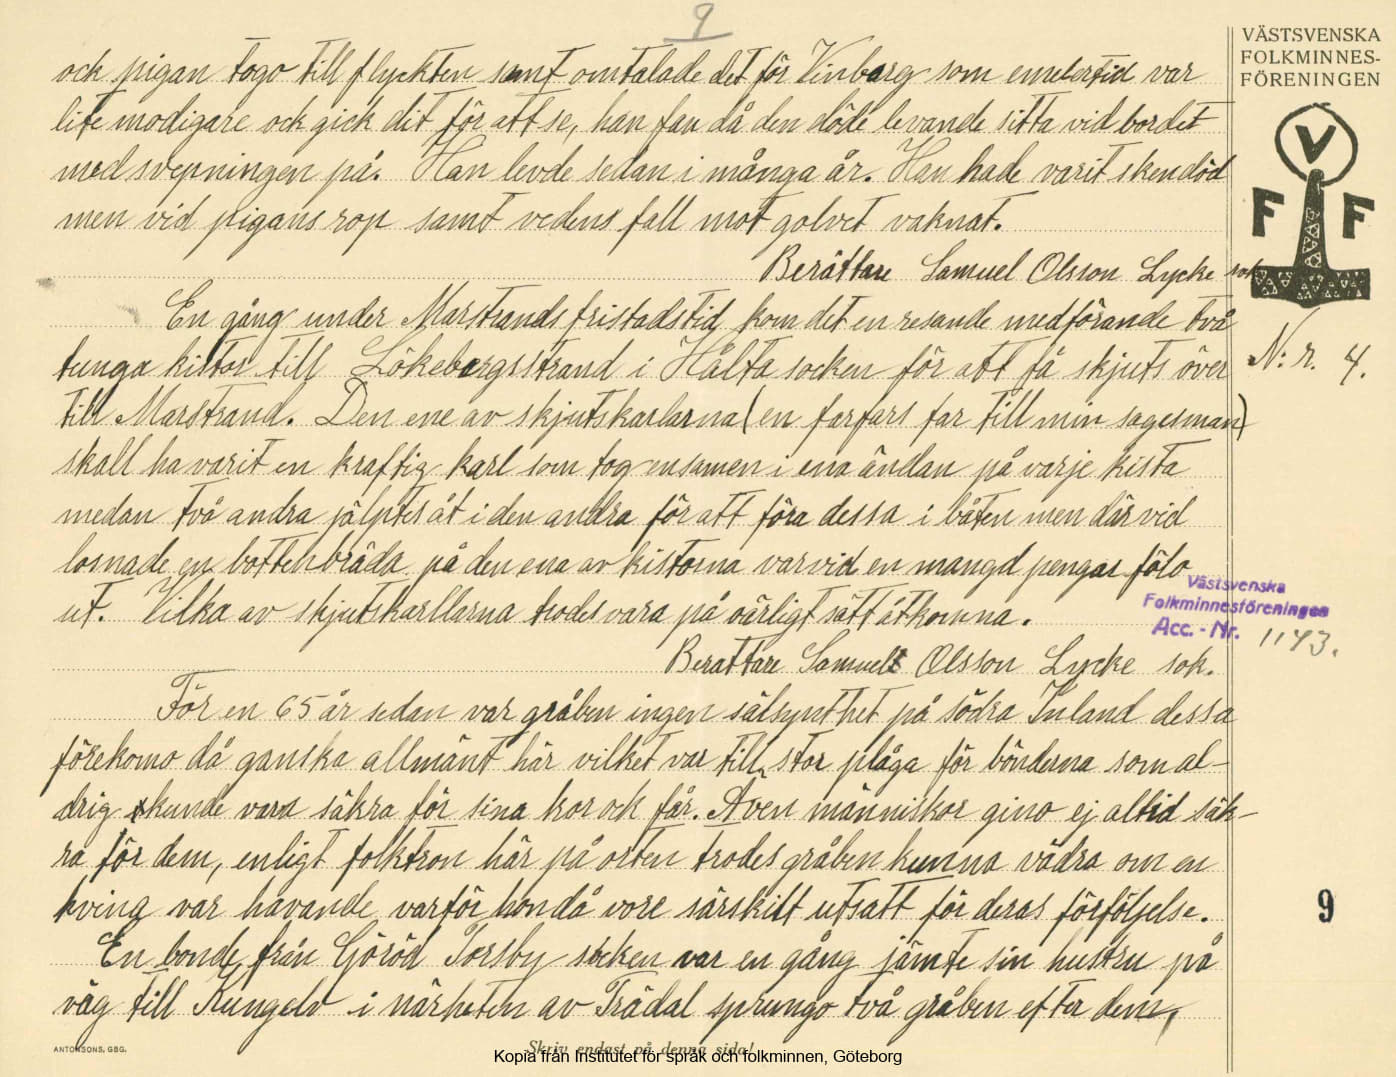 9
VÄSTSVENSKA
FOLKMINNES-
FÖRENINGEN
V
F F
ock pigan togo till flyckten samt omtalade det för Vinberg som emelertid var
lite modigare ock gick dit för att se, han fan då den döde levande sitta vid bordet
med svepningen på. Han levde sedan i många år. Han hade varit skendöd
men vid pigans rop samt vedens fall mot golvet vaknat.
Berättare Samuel Olsson Lycke sok
En gång under Marstrands fristadstid kom det en resande medförande två
tunga kistor till Lökebergsstrand i Hålta socken för att få skjuts över
till Marstrand. Den ene av skjutskarlarna (en farfars far till min sagesman)
skall ha varit en kraftig karl som tog ensamen i ena ändan på varje kista
medan två andra jälptes åt i den andra för att föra dessa i båten men där vid
losnade en bottenbräda på den ena av kistorna varvid en mangd pengar fölo
ut. Vilka av skjutskarllarna trodes vara på oärligt sätt åtkomna.
Berattare Samuel Olsson Lycke sok.
För en 65 år sedan var gråben ingen sälsynthet på södra Inland dessa
förekomo då ganska allmänt här vilket var till stor plåga för bönderna som al-
drig kunde vara säkra för sina kor ock får. Även människor gino ej altid säk-
ra för dem, enligt folktron här på orten trodes gråben kunna vädra om en
kvina var havande varför hon då vore särskilt utsatt för deras förföljelse.
En bonde från Göröd Torsby socken var en gång jämte sin hustru på
väg till Kungelv i närheten av Trädal sprungo två gråben efter dem,
N: r. 4.
Västsvenska
Folkminnesföreningen
Acc. - Nr. 1143.
9
ANTONSONS, GBG.
Skriv endast på denna sida!
Kopia från Institutet för språk och folkminnen, Göteborg